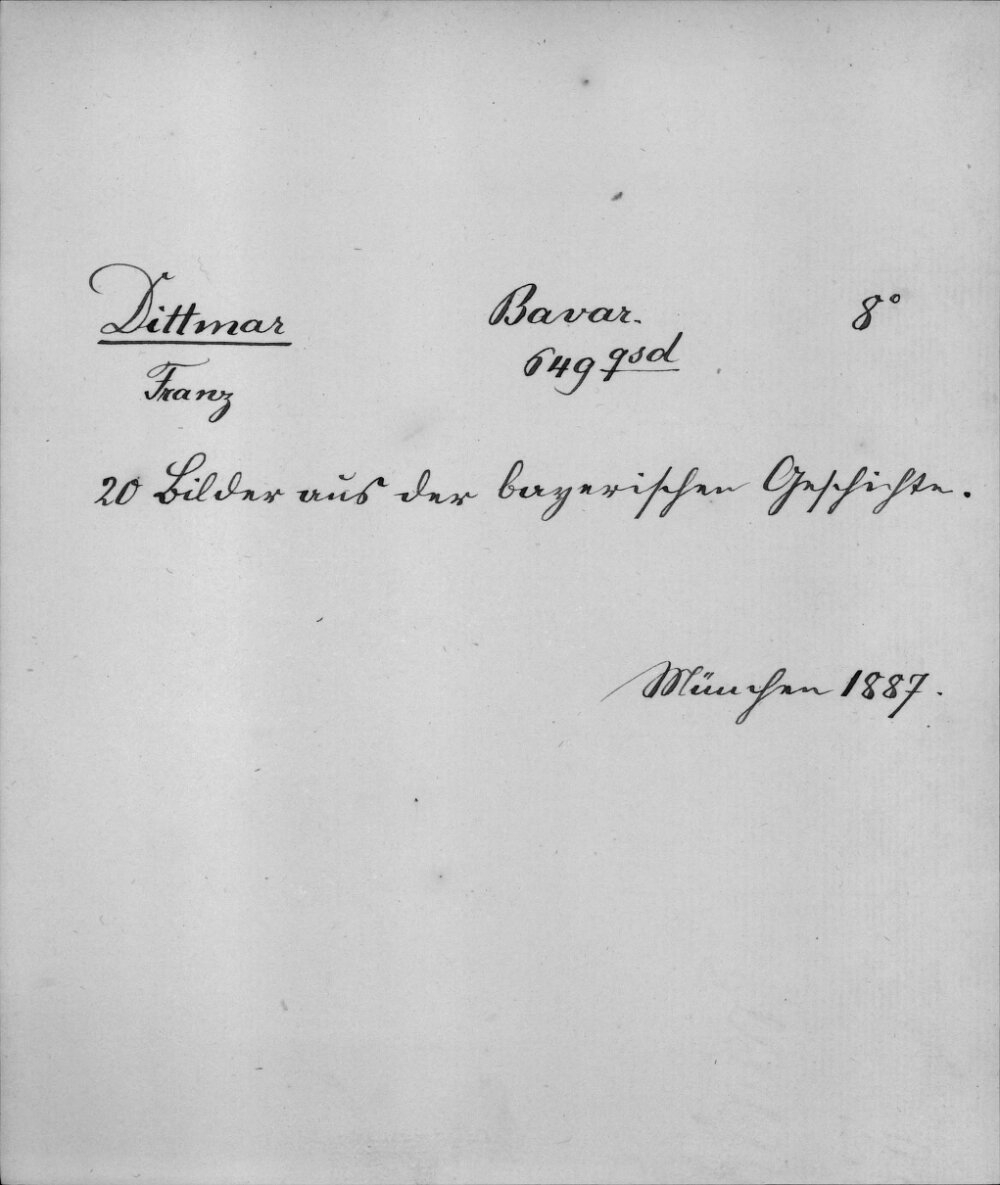 Dittmar Bavar. 8°
Franz 649 qsd
20 Bilder aus der bayerischen Geschichte.
München 1887.